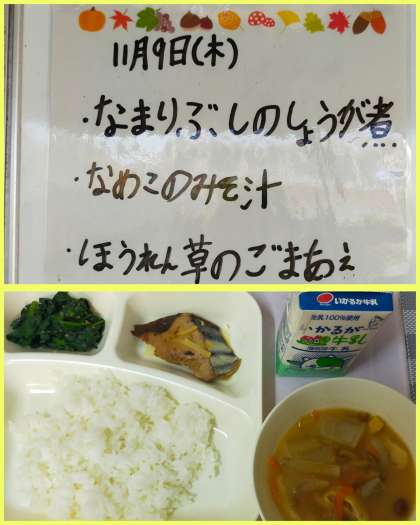 11月9日(木)
・なまりぶしのしょうが煮
・なめこのみそ汁
・ほうれん草のごまあえ
いかるが牛乳
生乳100%使用
いかるが
牛乳